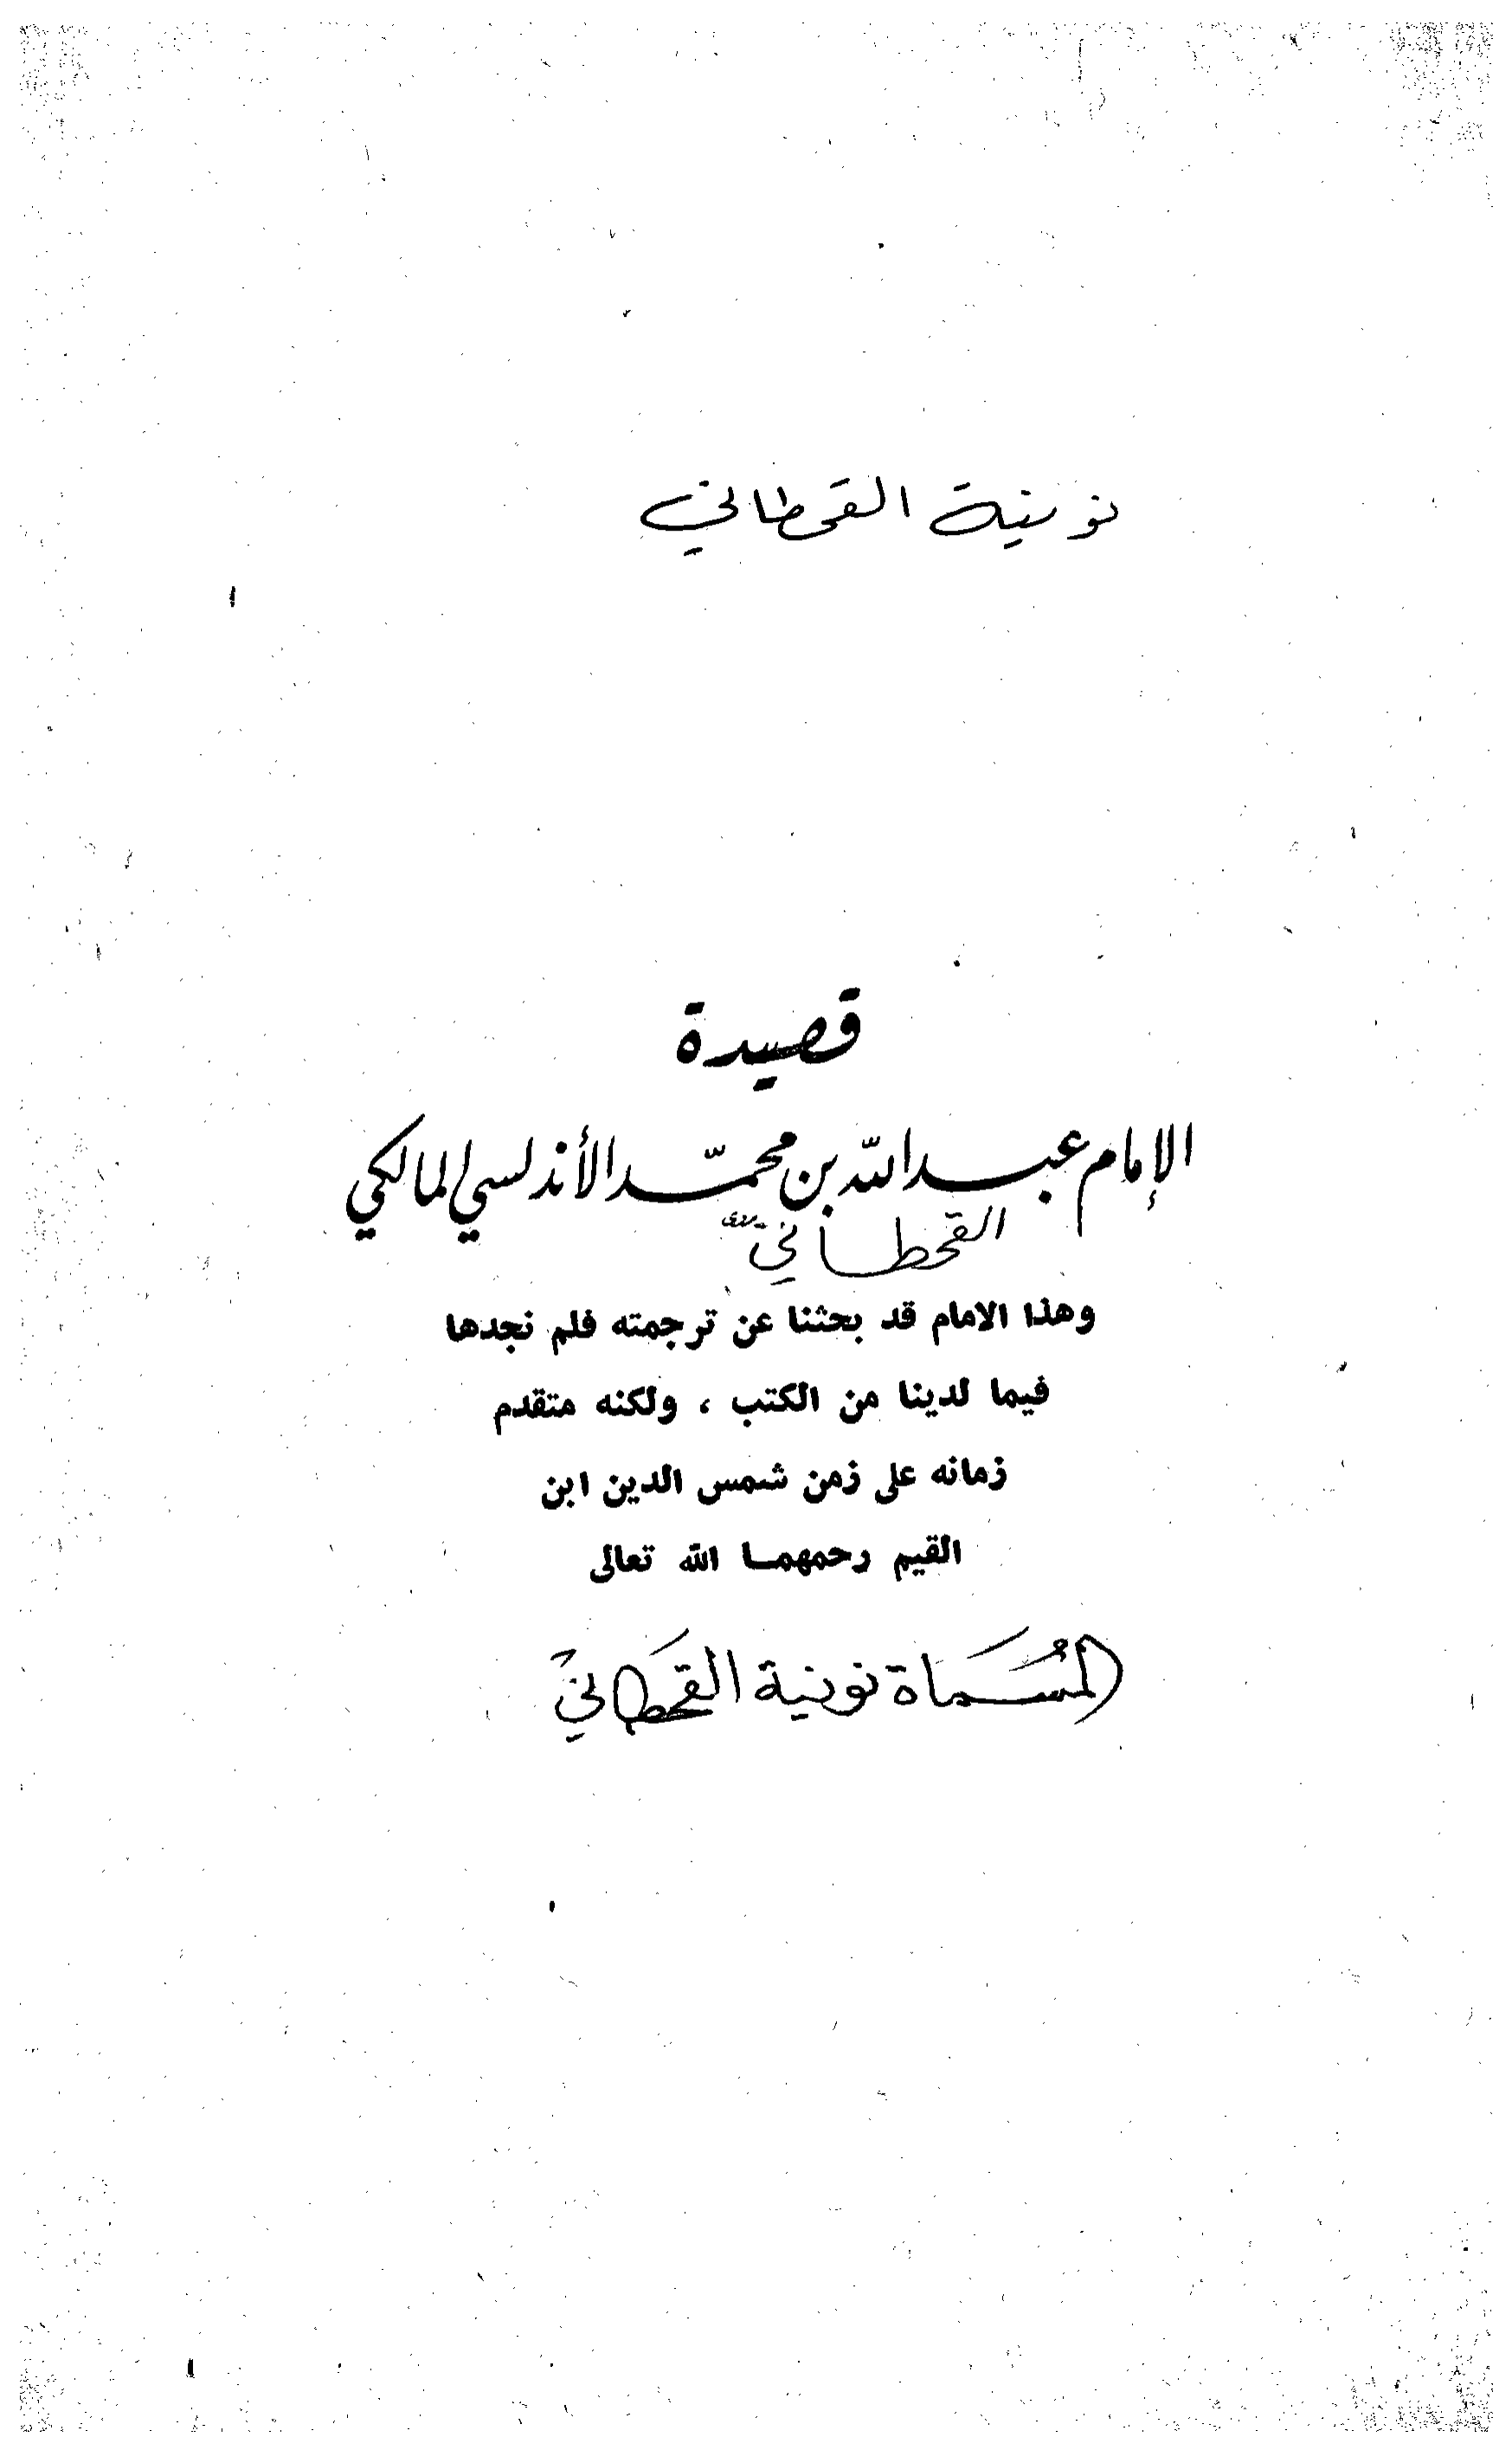 نونية القحطاني
قصيدة
الإمام عبد الله بن محمّد الأندلسي المالكي
القحطاني
وهذا الامام قد بحثنا عن ترجمته فلم نجدها
فيما لدينا من الكتب ، ولكنه متقدم
زمانه على زمن شمس الدين ابن
القيم رحمهما الله تعالى
المُسَماة نونية القَحطاني